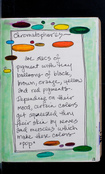 Chromatophores
are sacs of
pigment with tiny
balloons of black,
brown, orange, yellow
and red pigments.
Depending on their
mood, certain colors
get squeezed from
their skin by nerves
and muscles which
make those colors
*pop*